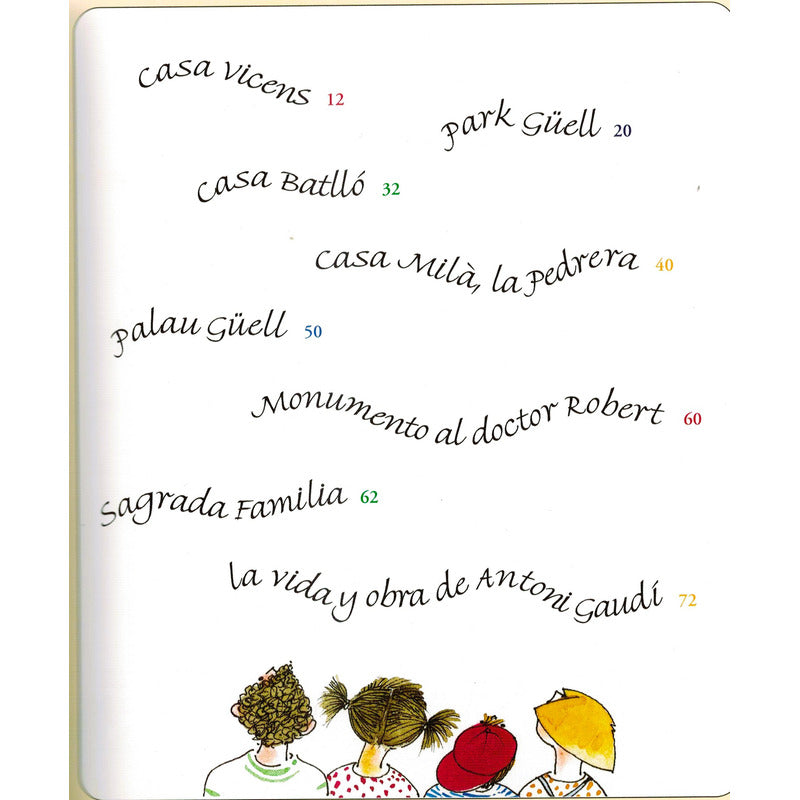 Casa Vicens 12
Park Güell 20
Casa Batlló 32
Casa Milà, la Pedrera 40
Palau Güell 50
Monumento al doctor Robert 60
Sagrada Familia 62
La vida y obra de Antoni Gaudí 72